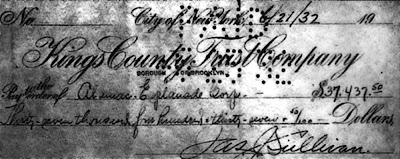 No. City of New York, 6/21/32 19
Kings County Trust Company
BOROUGH OF BROOKLYN
Pay to the order of Esplanade Corp. - $37,437.50
Thirty-seven thousand four hundred + thirty-seven + 50/100 Dollars
Jas J Sullivan.